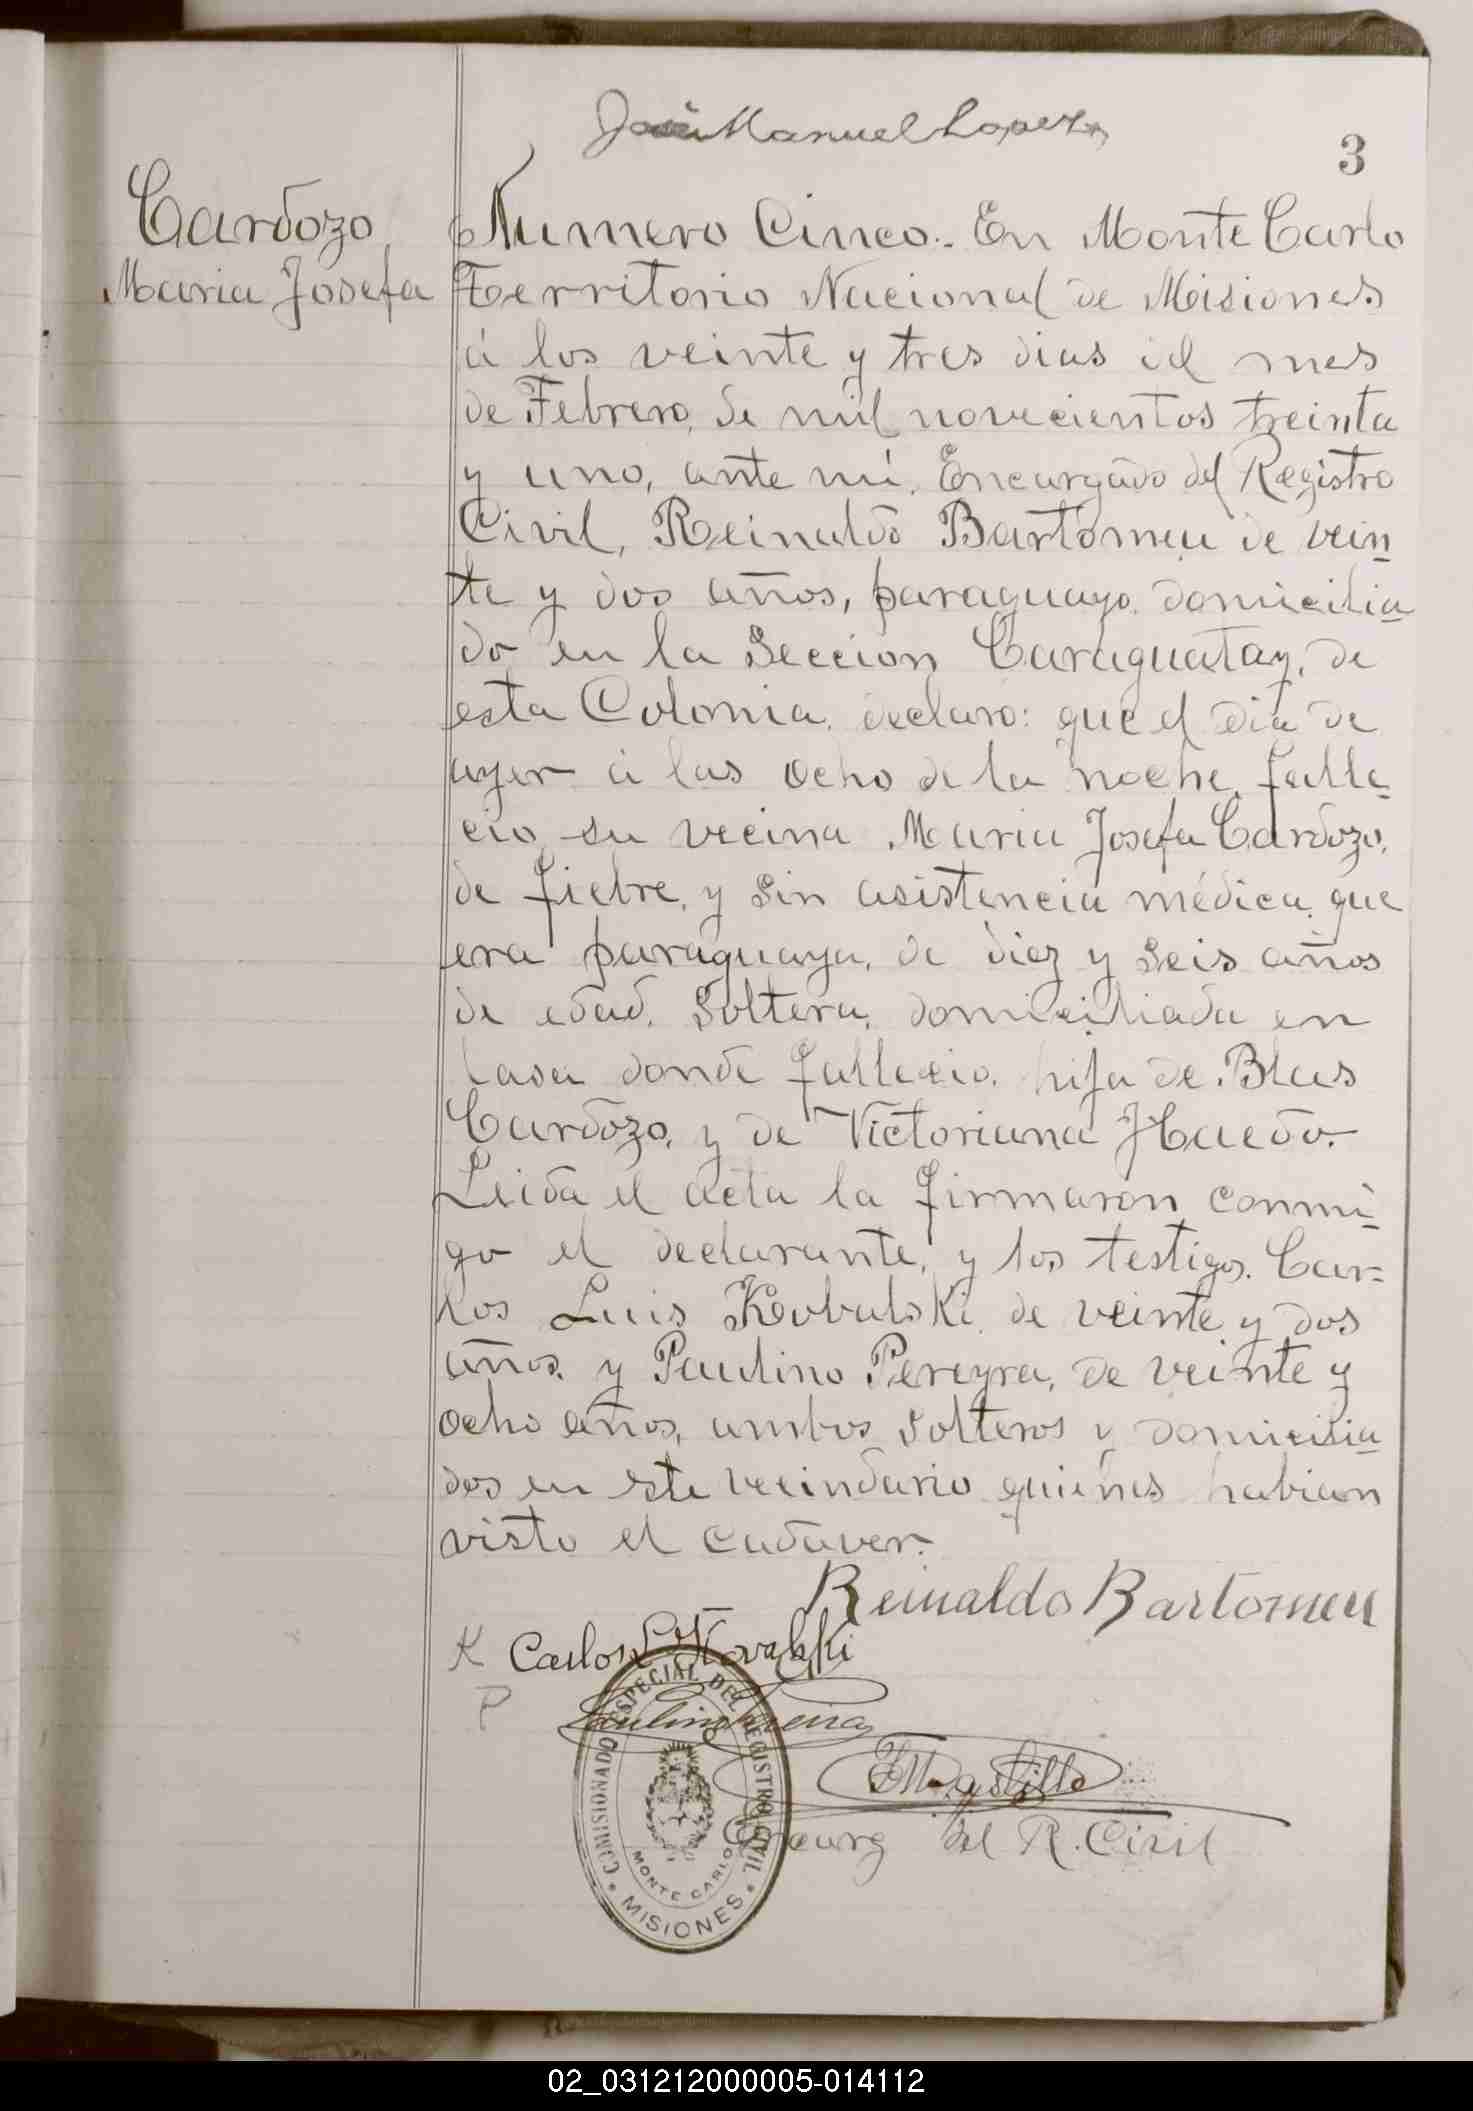 José Manuel Lopez
3
Cardozo
Maria Josefa
Numero Cinco.- En Monte Carlo
Territorio Nacional de Misiones
á los veinte y tres dias del mes
de Febrero, de mil novecientos treinta
y uno, ante mi. Encargado del Registro
Civil, Reinaldo Bartomeu de vein-
te y dos años, paraguayo domicilia-
do en la Seccion Caraguatay, de
esta Colonia, declaro: que el dia de
ayer á las ocho de la noche falle-
cio su vecina Maria Josefa Cardozo,
de fiebre, y sin asistencia médica, que
era paraguaya, de diez y seis años
de edad, Soltera, domiciliada en
casa donde fallecio, hija de Blas
Cardozo, y de Victoriana Haedo.-
Leida el acta la firmaron conmi-
go el declarante, y los testigos. Car-
los Luis Kovalski de veinte y dos
años y Paulino Pereyra, de veinte y
ocho años, ambos solteros y domicilia-
dos en este vecindario quienes habian
visto el cadaver.-
Reinaldo Bartomeu
K Carlos L Kovalski
P Paulino
Encarg del R. Civil
COMISIONADO ESPECIAL DEL REGISTRO CIVIL
MONTE CARLO
MISIONES
02_031212000005-014112